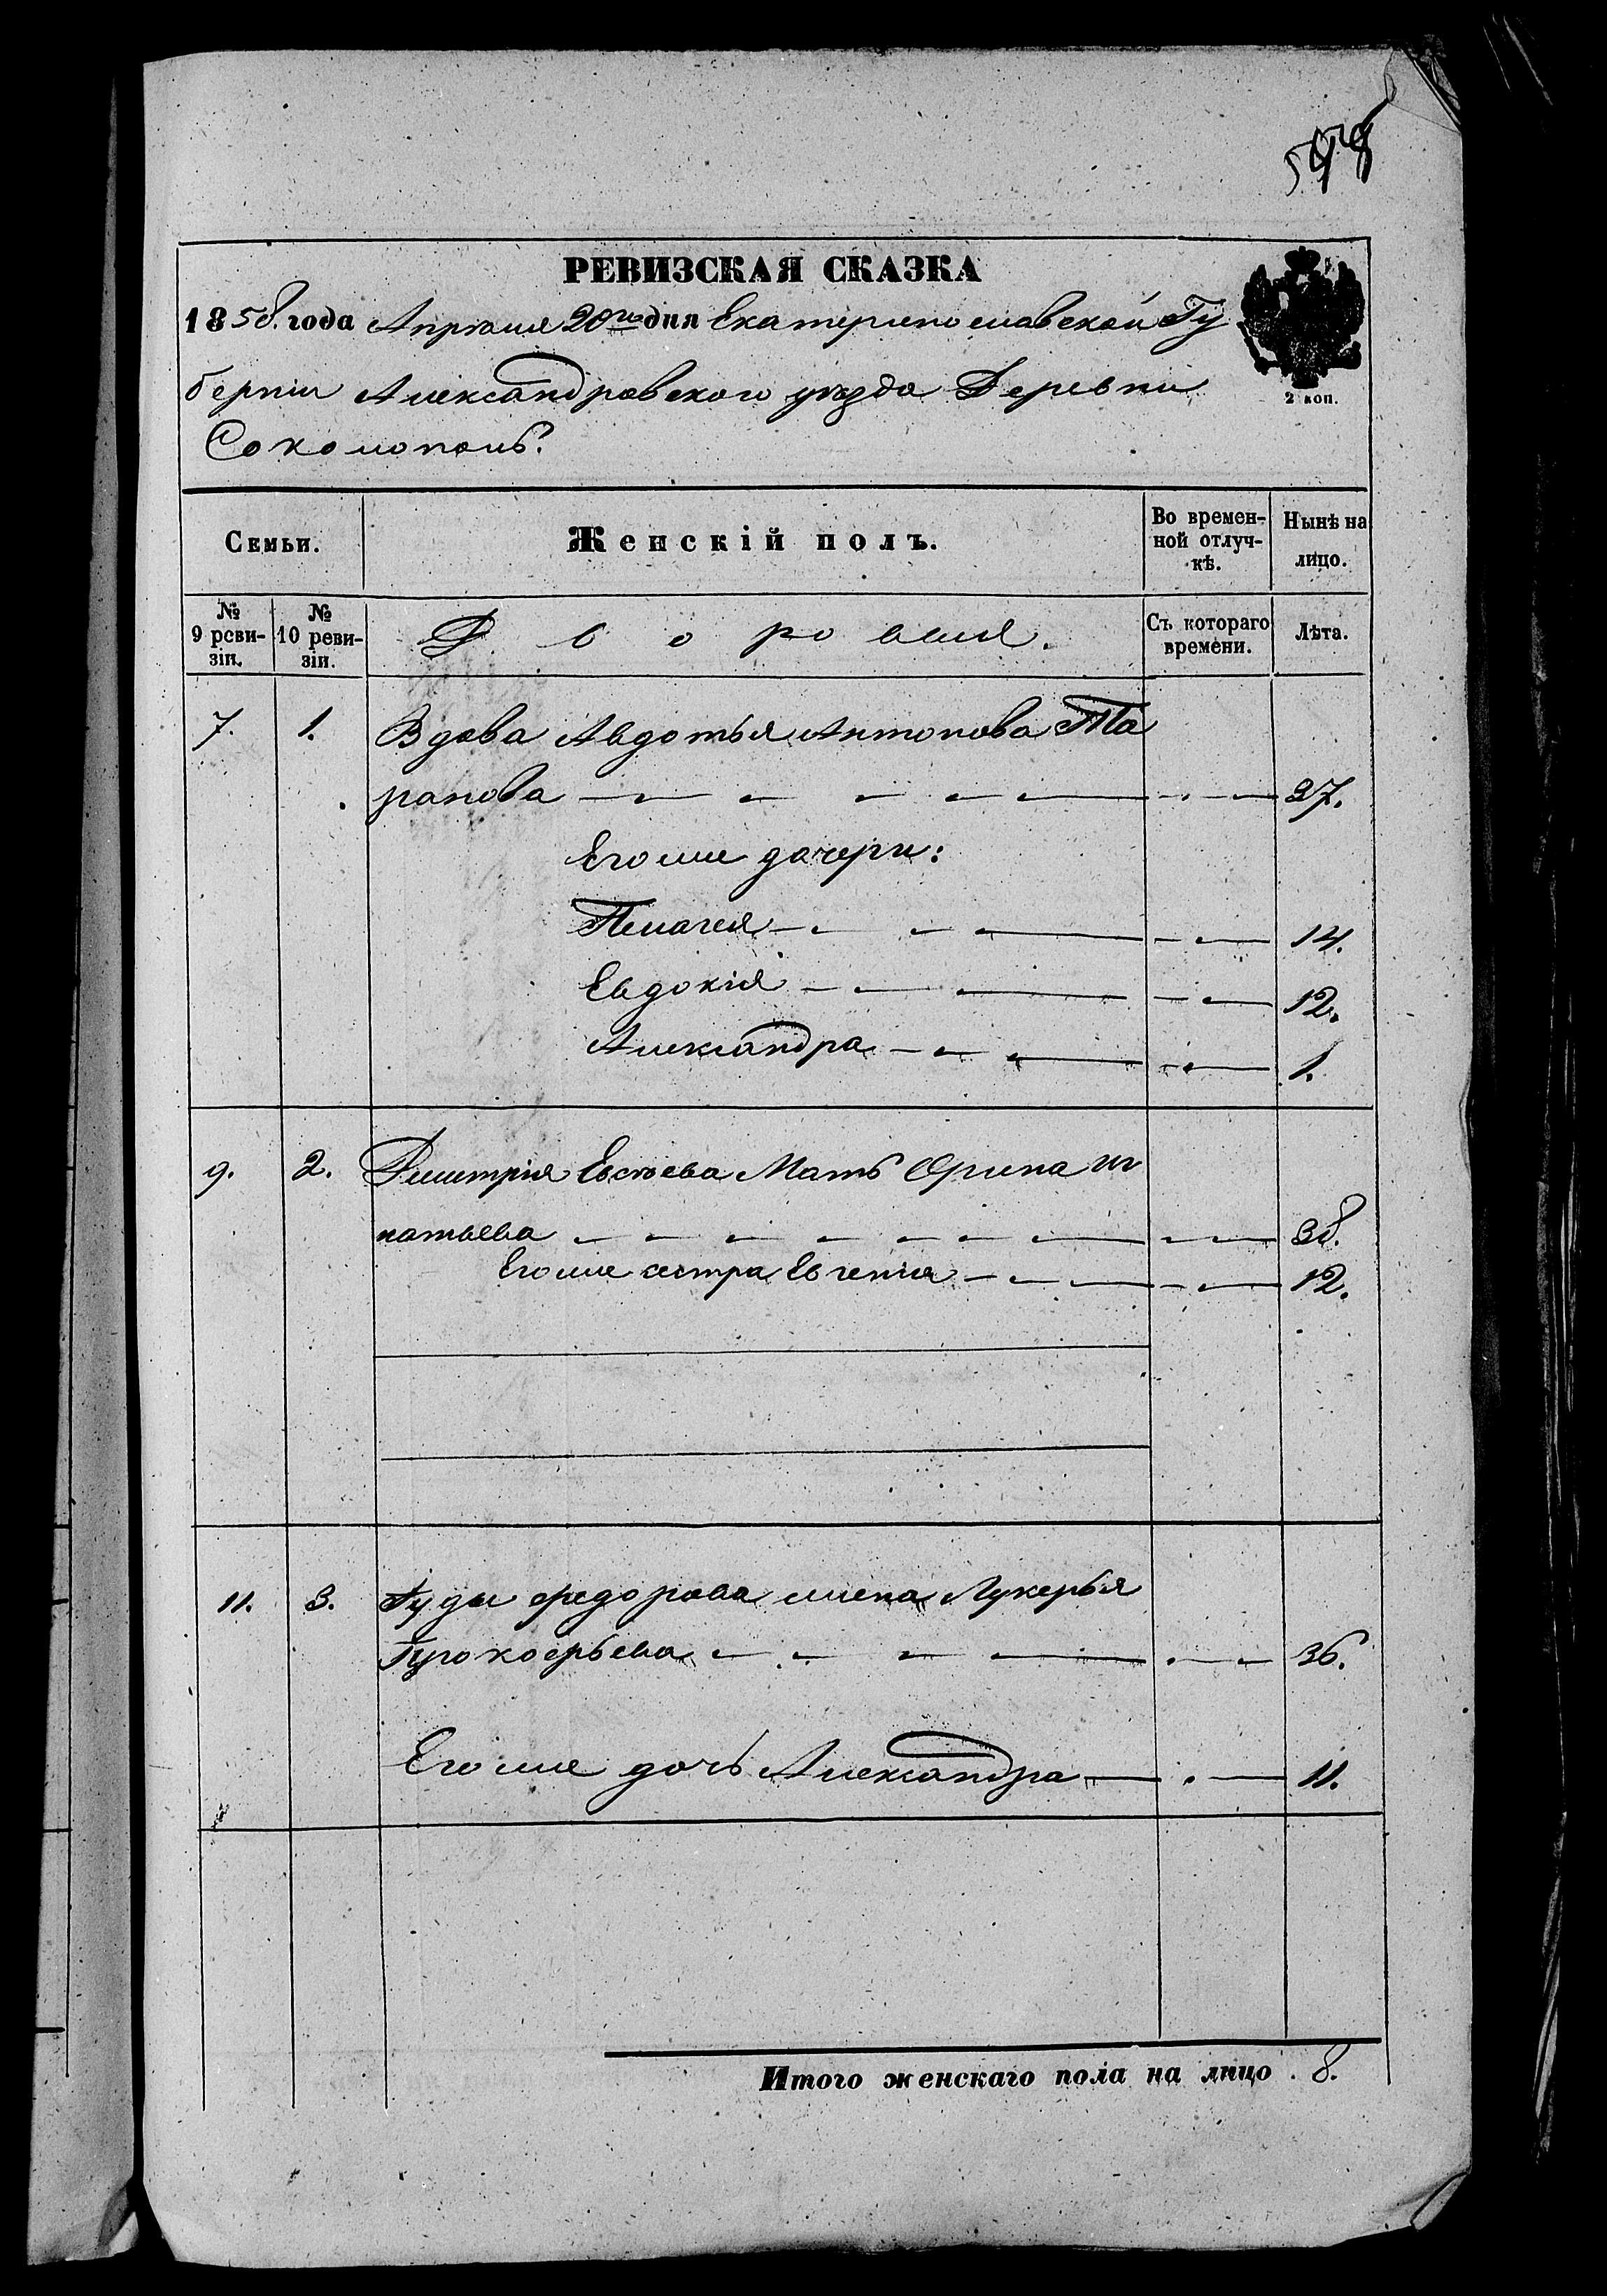 598
РЕВИЗСКАЯ СКАЗКА
1858. года Апреля 20го дня Екатеринославской Гу
берніи Александровского уезда Деревни
Соколополь.
2 коп.
Семьи.
Женскій полъ.
Во времен-
ной отлуч-
кѣ.
Нынѣ на
лицо.
№
9 реви-
зіи.
№
10 реви-
зіи.
Дворовыя.
Съ котораго
времени.
Лѣта.
7. 1. Вдова Авдотья Антонова Та
ранова 37.
Егоже дочери:
Пелагея 14.
Евдокія 12.
Александра 1.
9. 2. Дмитрія Евсѣева Мать Орина Иг
натьева 38.
Егоже сестра Евгенія 12.
11. 3. Гуды Федорова жена Лукерья
Прокофьева 36.
Егоже дочь Александра 11.
Итого женскаго пола на лицо . 8.